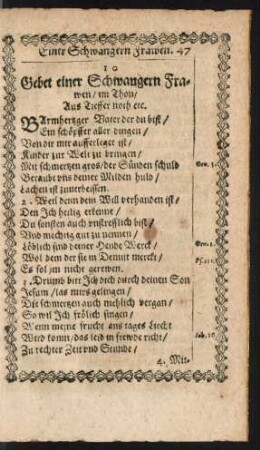 Einer Schwangern Frawen. 47
10
Gebet einer Schwangern Fra-
wen/ im Thon/
Aus Tieffer noth etc.
BArmhertzger Vater der du bist/
Ein schöpffer aller dingen/
Von dir mir aufferleget ist/
Kinder zur Welt zu bringen/
Mit schmertzen gros/ der Sünden schuld
Beraubt vns deiner Milden huld/
Lachen ist zuuerbeissen.
Gen. 3.
2. Weil denn dein Will verhanden ist/
Den Ich heilig erkenne/
Du sonsten auch vnstrefflich bist/
Vnd mechtig gut zu nennen/
Löblich sind deiner Hende Werck/
Gen. 1.
Wol dem der sie in Demut merckt/
Es sol jm nicht gerewen.
3. Drumb bitt Ich dich durch deinen Son
Jesum/ las mirs gelingen/
Die schmertzen auch mehlich vergan/
So wil Ich frölich singen/
Wenn meine frucht ans tages Liecht
Wird komn/ das leid in frewde richt/
Joh. 16.
Zu rechter Zeit vnd Stunde/
4. Mit-